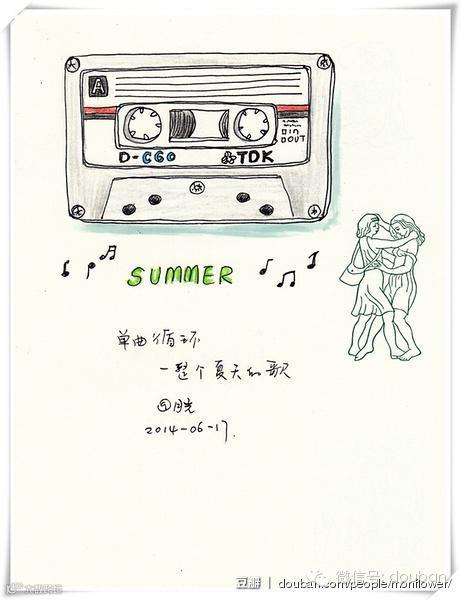 A
IN
OUT
D-C60 TDK
SUMMER
单曲循环
一整个夏天的歌
@月光
2014-06-17.
微信号: douban
豆瓣 | douban.com/people/moriflower/